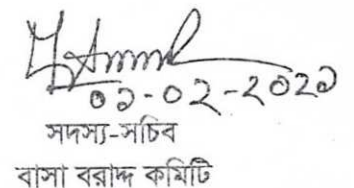 ০১-০২-২০২১
সদস্য-সচিব
বাসা বরাদ্দ কমিটি